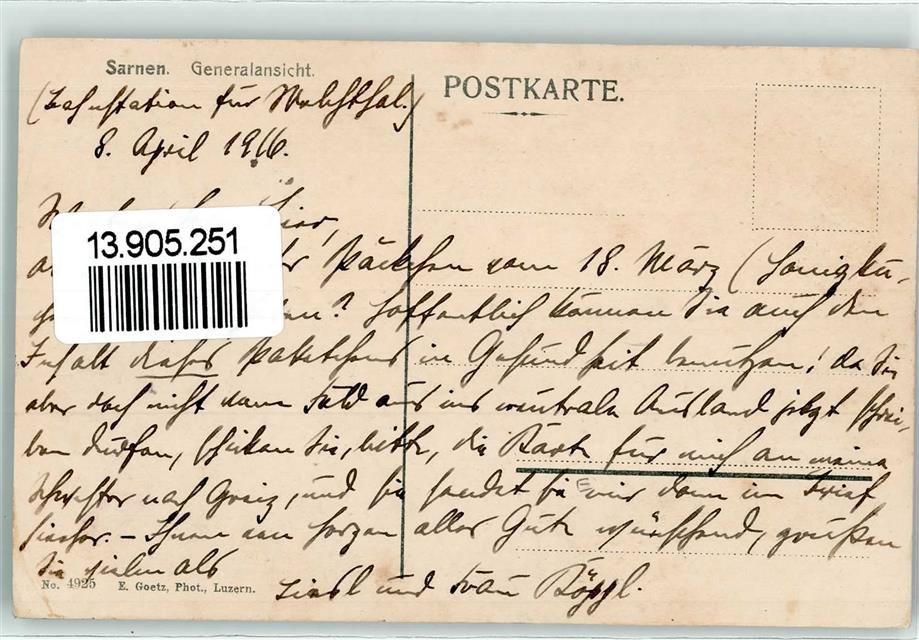 Sarnen. Generalansicht.
POSTKARTE.
(Bahnstation für Melchthal.)
8. April 1916.
13.905.251
Päckchen vom 18. März (Honigku-
? Hoffentlich können Sie auch den
Inhalt dieses Paketchens in Gesundheit benutzen! Da Sie
aber doch nicht vom Feld aus ins neutrale Ausland jetzt schrei-
ben dürfen, schicken Sie, bitte, die Karte für mich an meine
Schwester nach Greiz, und sie sendet sie mir dann im Brief
hierher. – Ihnen von Herzen alles Gute wünschend, grüßen
Sie vielmals
und Frau
No. 4925 E. Goetz, Phot., Luzern.